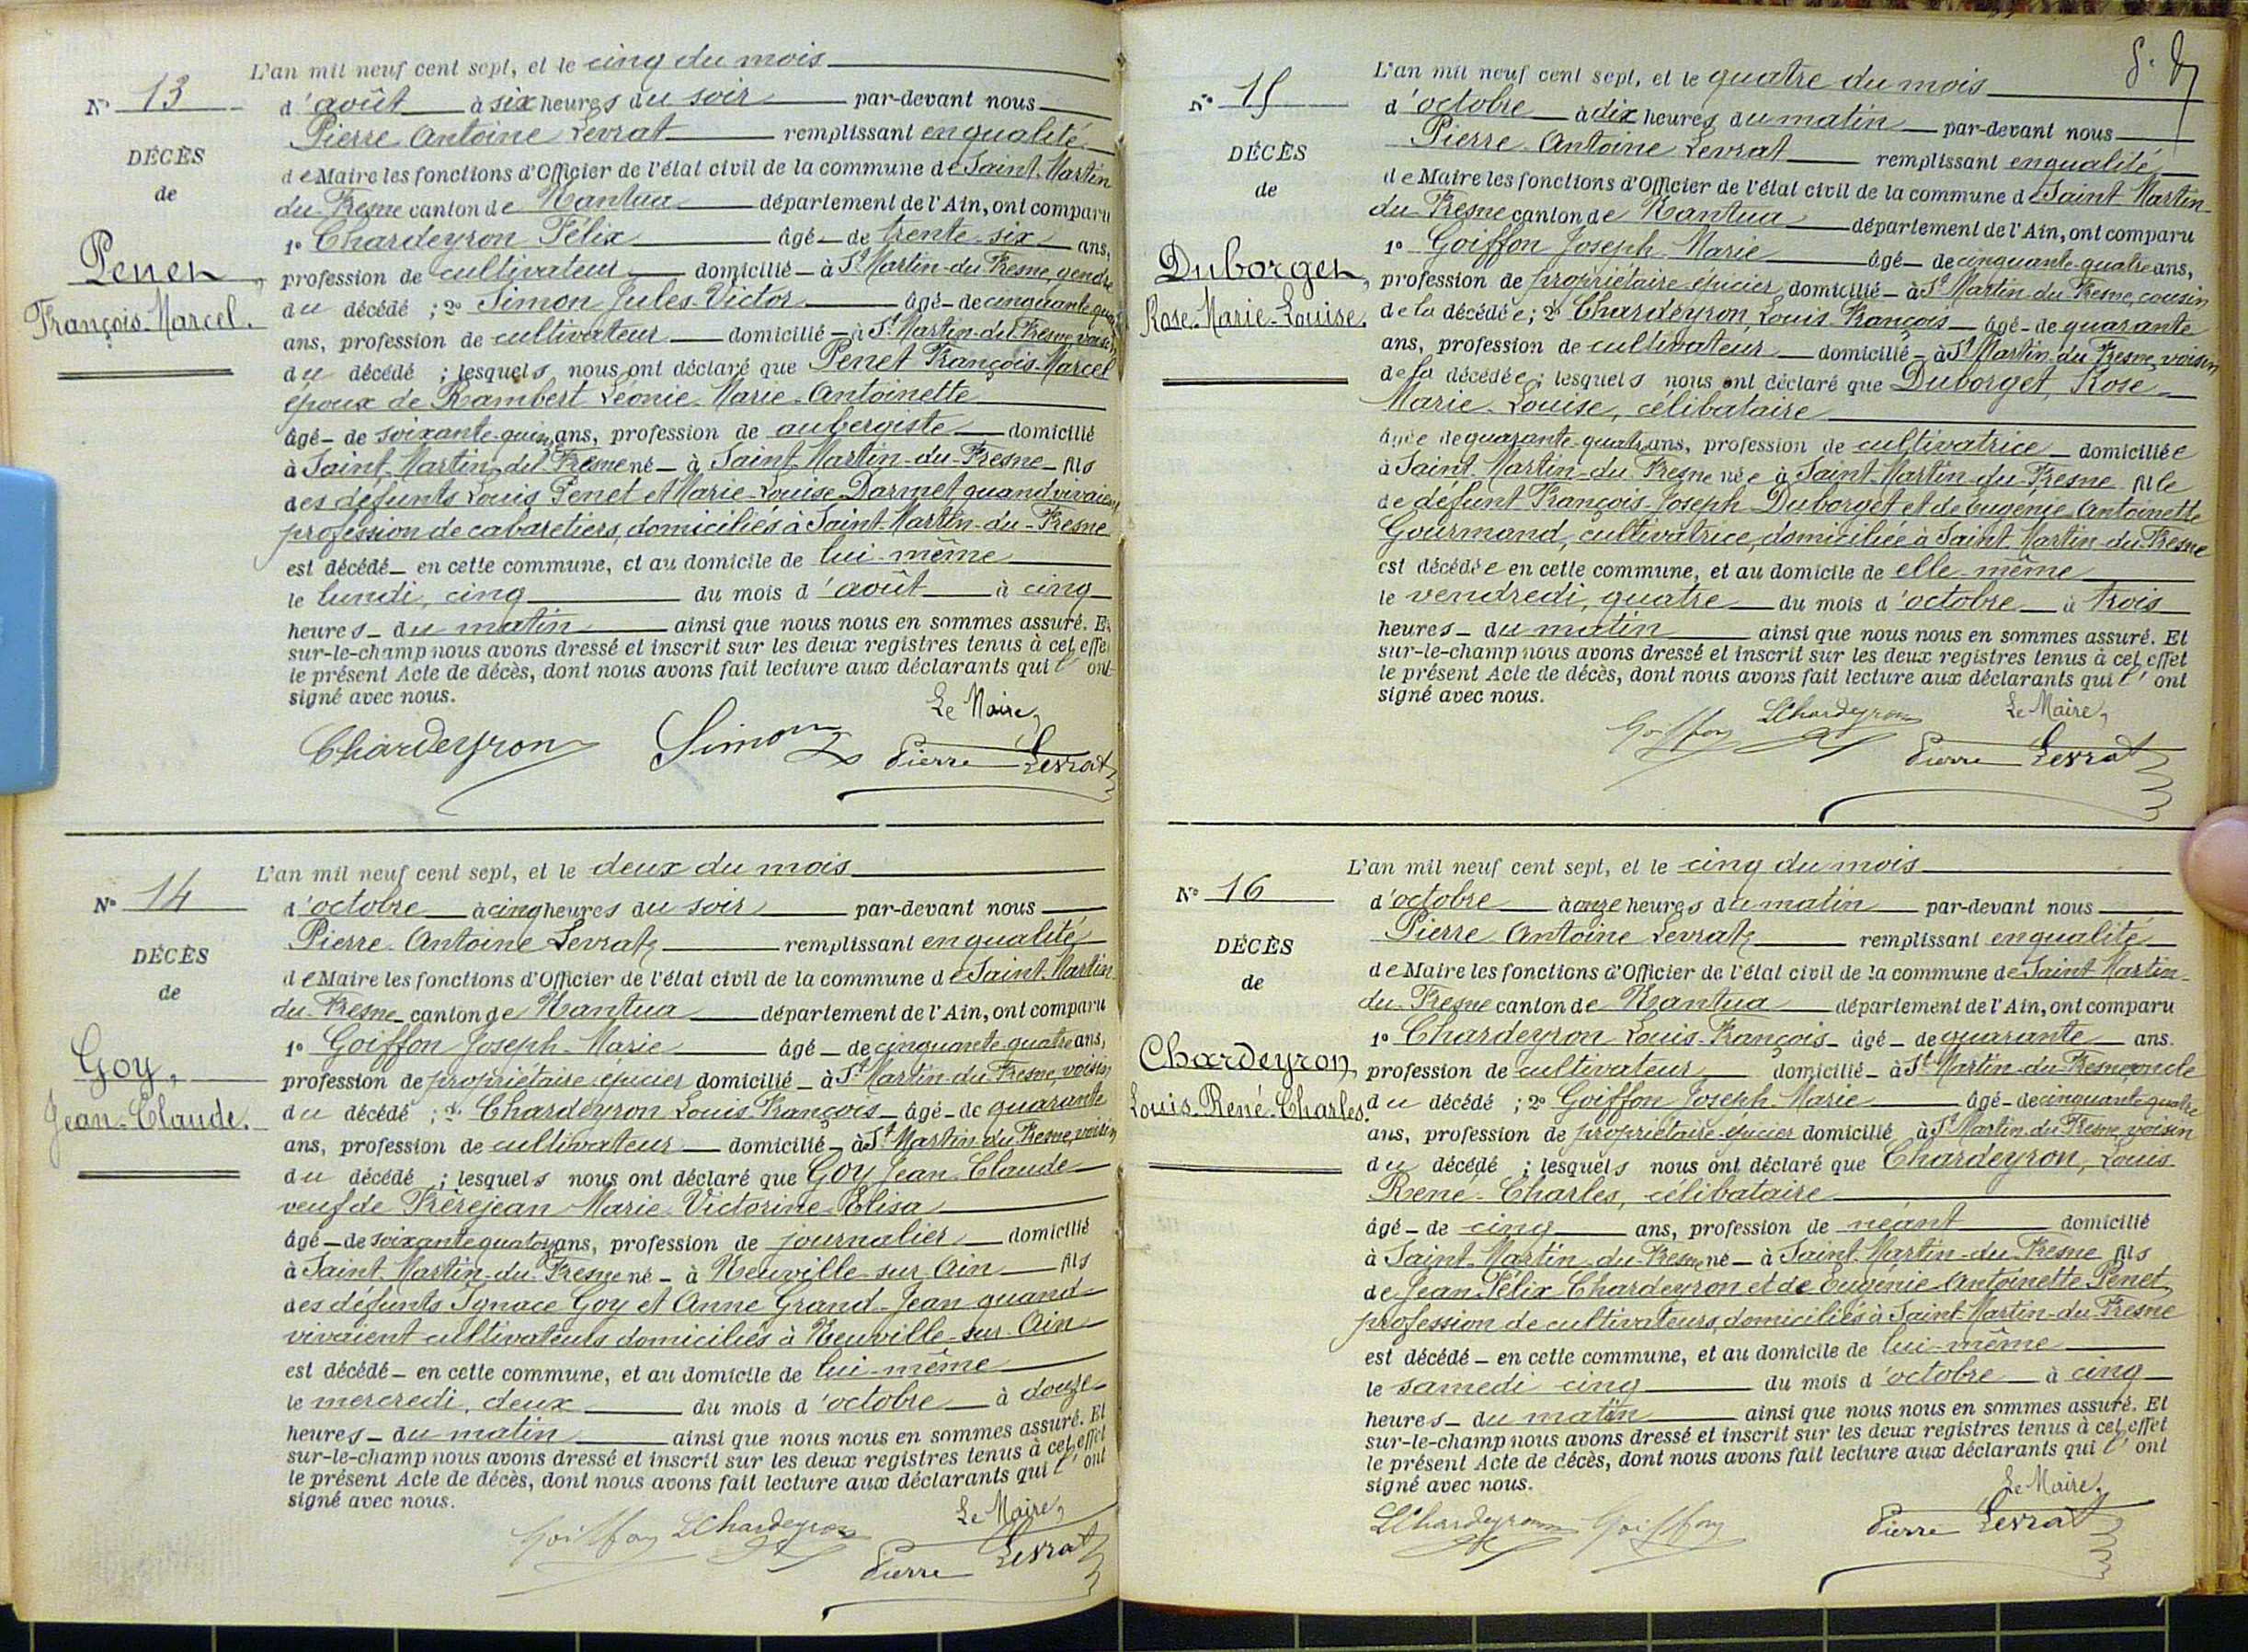 N° 13
DÉCÈS
de
Penet,
François-Marcel.
L'an mil neuf cent sept, et le cinq du mois
d'août à six heures du soir par-devant nous
Pierre Antoine Levrat remplissant en qualité
de Maire les fonctions d'Officier de l'état civil de la commune de Saint-Martin
du-Fresne canton de Nantua département de l'Ain, ont comparu
1° Chardeyron Félix âgé de trente-six ans,
profession de cultivateur domicilié à St Martin-du-Fresne, gendre
du décédé ; 2° Simon Jules-Victor âgé de cinquante
ans, profession de cultivateur domicilié à St Martin-du-Fresne, voisin
du décédé ; lesquels nous ont déclaré que Penet François-Marcel
époux de Rambert Léonie-Marie-Antoinette
âgé de soixante-quinze ans, profession de aubergiste domicilié
à Saint-Martin-du-Fresne né à Saint-Martin-du-Fresne fils
des défunts Louis Penet et Marie-Louise Darmet, quand vivaient
profession de cabaretiers, domiciliés à Saint-Martin-du-Fresne
est décédé en cette commune, et au domicile de lui-même
le lundi, cinq du mois d'août à cinq
heures du matin ainsi que nous nous en sommes assuré. Et
sur-le-champ nous avons dressé et inscrit sur les deux registres tenus à cet effet
le présent Acte de décès, dont nous avons fait lecture aux déclarants qui l'ont
signé avec nous.
Le Maire,
Chardeyron Simon Pierre Levrat
N° 14
DÉCÈS
de
Goy,
Jean-Claude.
L'an mil neuf cent sept, et le deux du mois
d'octobre à cinq heures du soir par-devant nous
Pierre Antoine Levrat remplissant en qualité
de Maire les fonctions d'Officier de l'état civil de la commune de Saint-Martin
du-Fresne canton de Nantua département de l'Ain, ont comparu
1° Goiffon Joseph-Marie âgé de cinquante-quatre ans,
profession de propriétaire-épicier domicilié à St Martin-du-Fresne, voisin
du décédé ; 2° Chardeyron Louis-François âgé de quarante
ans, profession de cultivateur domicilié à St Martin-du-Fresne, voisin
du décédé ; lesquels nous ont déclaré que Goy Jean-Claude
veuf de Frèrejean Marie-Victorine-Elisa
âgé de soixante quatorze ans, profession de journalier domicilié
à Saint-Martin-du-Fresne né à Neuville-sur-Ain fils
des défunts Ignace Goy et Anne Grand-Jean quand
vivaient cultivateurs domiciliés à Neuville-sur-Ain
est décédé en cette commune, et au domicile de lui-même
le mercredi, deux du mois d'octobre à douze
heures du matin ainsi que nous nous en sommes assuré. Et
sur-le-champ nous avons dressé et inscrit sur les deux registres tenus à cet effet
le présent Acte de décès, dont nous avons fait lecture aux déclarants qui l'ont
signé avec nous.
Le Maire,
Goiffon LChardeyron Pierre Levrat
N° 15
DÉCÈS
de
Duborget,
Rose-Marie-Louise.
L'an mil neuf cent sept, et le quatre du mois
d'octobre à dix heures du matin par-devant nous
Pierre Antoine Levrat remplissant en qualité
de Maire les fonctions d'Officier de l'état civil de la commune de Saint-Martin-
du-Fresne canton de Nantua département de l'Ain, ont comparu
1° Goiffon Joseph-Marie âgé de cinquante-quatre ans,
profession de propriétaire-épicier domicilié à St Martin-du-Fresne, cousin
de la décédée ; 2° Chardeyron, Louis-François âgé de quarante
ans, profession de cultivateur domicilié à St Martin-du-Fresne, voisin
de la décédée ; lesquels nous ont déclaré que Duborget, Rose-
Marie-Louise, célibataire
âgée de quarante-quatre ans, profession de cultivatrice domiciliée
à Saint-Martin-du-Fresne née à Saint-Martin-du-Fresne fille
de défunt François-Joseph Duborget et de Eugénie-Antoinette
Gourmand, cultivatrice, domiciliée à Saint-Martin-du-Fresne
est décédée en cette commune, et au domicile de elle-même
le vendredi, quatre du mois d'octobre à trois
heures du matin ainsi que nous nous en sommes assuré. Et
sur-le-champ nous avons dressé et inscrit sur les deux registres tenus à cet effet
le présent Acte de décès, dont nous avons fait lecture aux déclarants qui l'ont
signé avec nous.
Le Maire,
Goiffon LChardeyron Pierre Levrat
N° 16
DÉCÈS
de
Chardeyron,
Louis-René-Charles.
L'an mil neuf cent sept, et le cinq du mois
d'octobre à onze heures du matin par-devant nous
Pierre Antoine Levrat remplissant en qualité
de Maire les fonctions d'Officier de l'état civil de la commune de Saint-Martin-
du-Fresne canton de Nantua département de l'Ain, ont comparu
1° Chardeyron Louis-François âgé de quarante ans.
profession de cultivateur domicilié à St Martin-du-Fresne, oncle
du décédé ; 2° Goiffon Joseph-Marie âgé de cinquante quatre
ans, profession de propriétaire-épicier domicilié à St Martin-du-Fresne, voisin
du décédé ; lesquels nous ont déclaré que Chardeyron, Louis
René-Charles, célibataire
âgé de cinq ans, profession de néant domicilié
à Saint-Martin-du-Fresne né à Saint-Martin-du-Fresne fils
de Jean-Félix Chardeyron et de Eugénie Antoinette Penet
profession de cultivateurs, domiciliés à Saint-Martin-du-Fresne
est décédé en cette commune, et au domicile de lui-même
le samedi cinq du mois d'octobre à cinq
heures du matin ainsi que nous nous en sommes assuré. Et
sur-le-champ nous avons dressé et inscrit sur les deux registres tenus à cet effet
le présent Acte de décès, dont nous avons fait lecture aux déclarants qui l'ont
signé avec nous.
Le Maire,
LChardeyron Goiffon Pierre Levrat